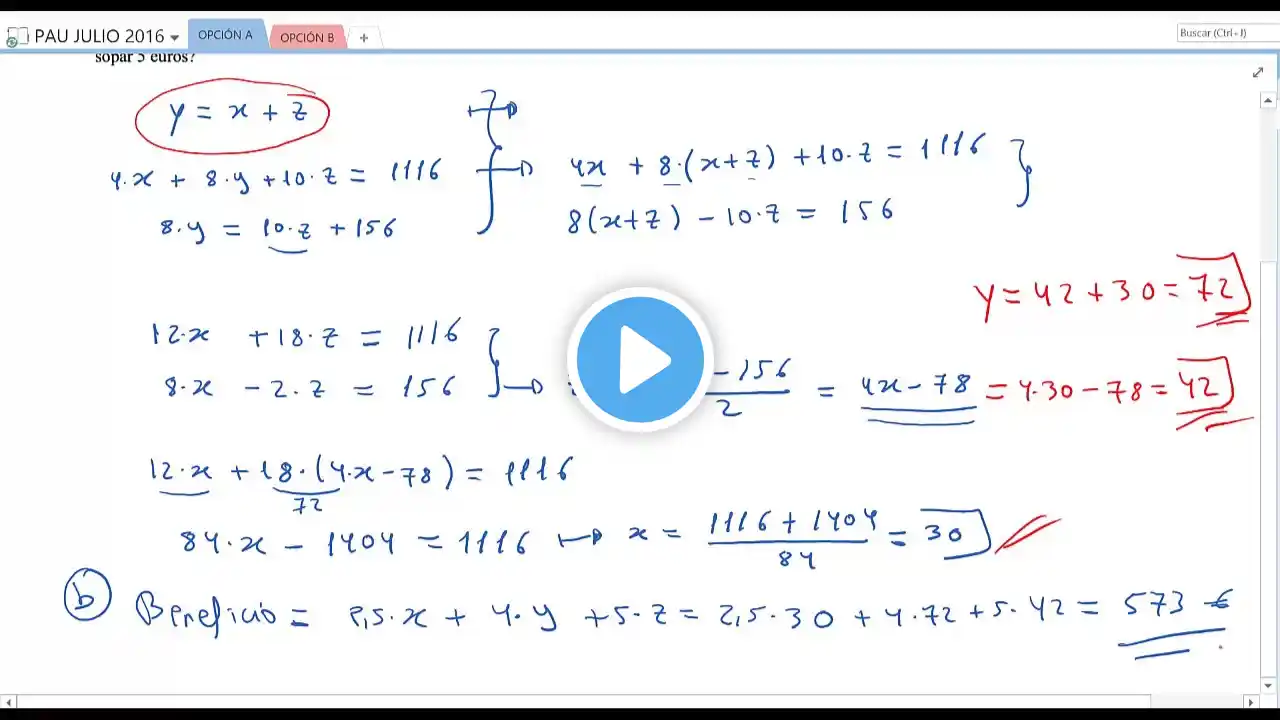 PAU JULIO 2016 OPCIÓN A OPCIÓN B +
Buscar (Ctrl+J)
sopar 5 euros?
y = x + z
4.x + 8.y + 10.z = 1116
8.y = 10.z + 156
4x + 8.(x+z) + 10.z = 1116
8(x+z) - 10.z = 156
y = 42 + 30 = 72
12.x + 18.z = 1116
8.x - 2.z = 156
- 156
2
= 4x - 78 = 4.30 - 78 = 42
12.x + 18.(4.x - 78) = 1116
72
84.x - 1404 = 1116 ↦ x = 1116 + 1404 / 84 = 30
b Beneficio = 2,5.x + 4.y + 5.z = 2,5.30 + 4.72 + 5.42 = 573 €